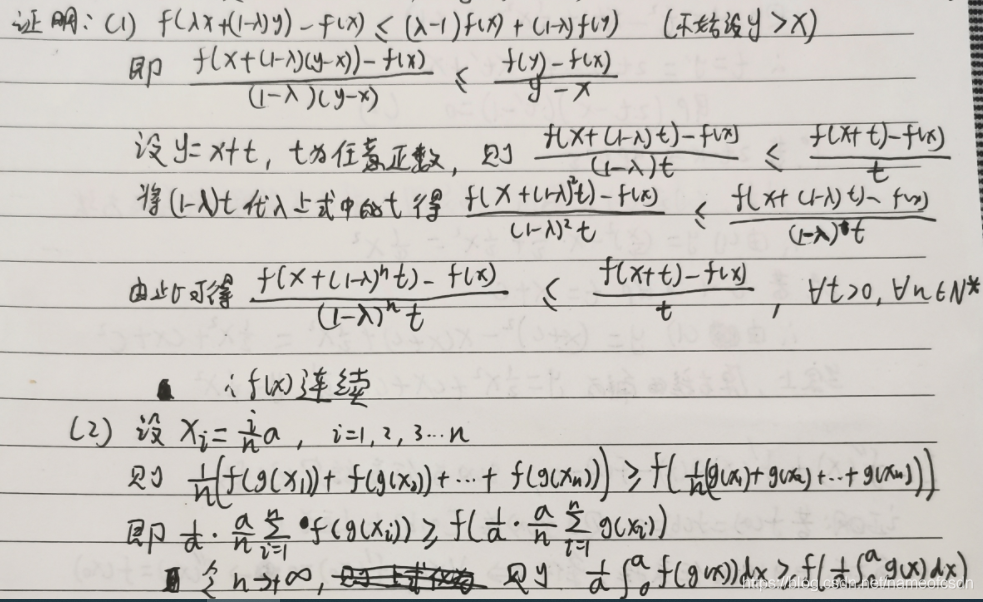 证明: (1) f(λx+(1-λ)y) - f(x) ≤ (λ-1)f(x) + (1-λ)f(y) (不妨设 y > x)
即 \frac{f(x+(1-λ)(y-x)) - f(x)}{(1-λ)(y-x)} ≤ \frac{f(y) - f(x)}{y - x}
设 y = x+t, t为任意正数, 则 \frac{f(x+(1-λ)t) - f(x)}{(1-λ)t} ≤ \frac{f(x+t) - f(x)}{t}
将(1-λ)t 代入上式中的t 得 \frac{f(x+(1-λ)^2t) - f(x)}{(1-λ)^2 t} ≤ \frac{f(x+(1-λ)t) - f(x)}{(1-λ)t}
由此可得 \frac{f(x+(1-λ)^n t) - f(x)}{(1-λ)^n t} ≤ \frac{f(x+t) - f(x)}{t}, ∀t>0, ∀n∈N*
∴ f(x) 连续
(2) 设 x_i = \frac{i}{n}a, i=1, 2, 3…n
则 \frac{1}{n}(f(g(x_1)) + f(g(x_2)) + … + f(g(x_n))) ≥ f(\frac{1}{n}(g(x_1)+g(x_2)+…+g(x_n)))
即 \frac{1}{a}·\frac{a}{n}\sum_{i=1}^{n} f(g(x_i)) ≥ f(\frac{1}{a}·\frac{a}{n}\sum_{i=1}^{n} g(x_i))
令 n→+∞, 则 \frac{1}{a}∫_0^a f(g(x))dx ≥ f(\frac{1}{a}∫_0^a g(x)dx)
https://blog.csdn.net/nameofcsdn